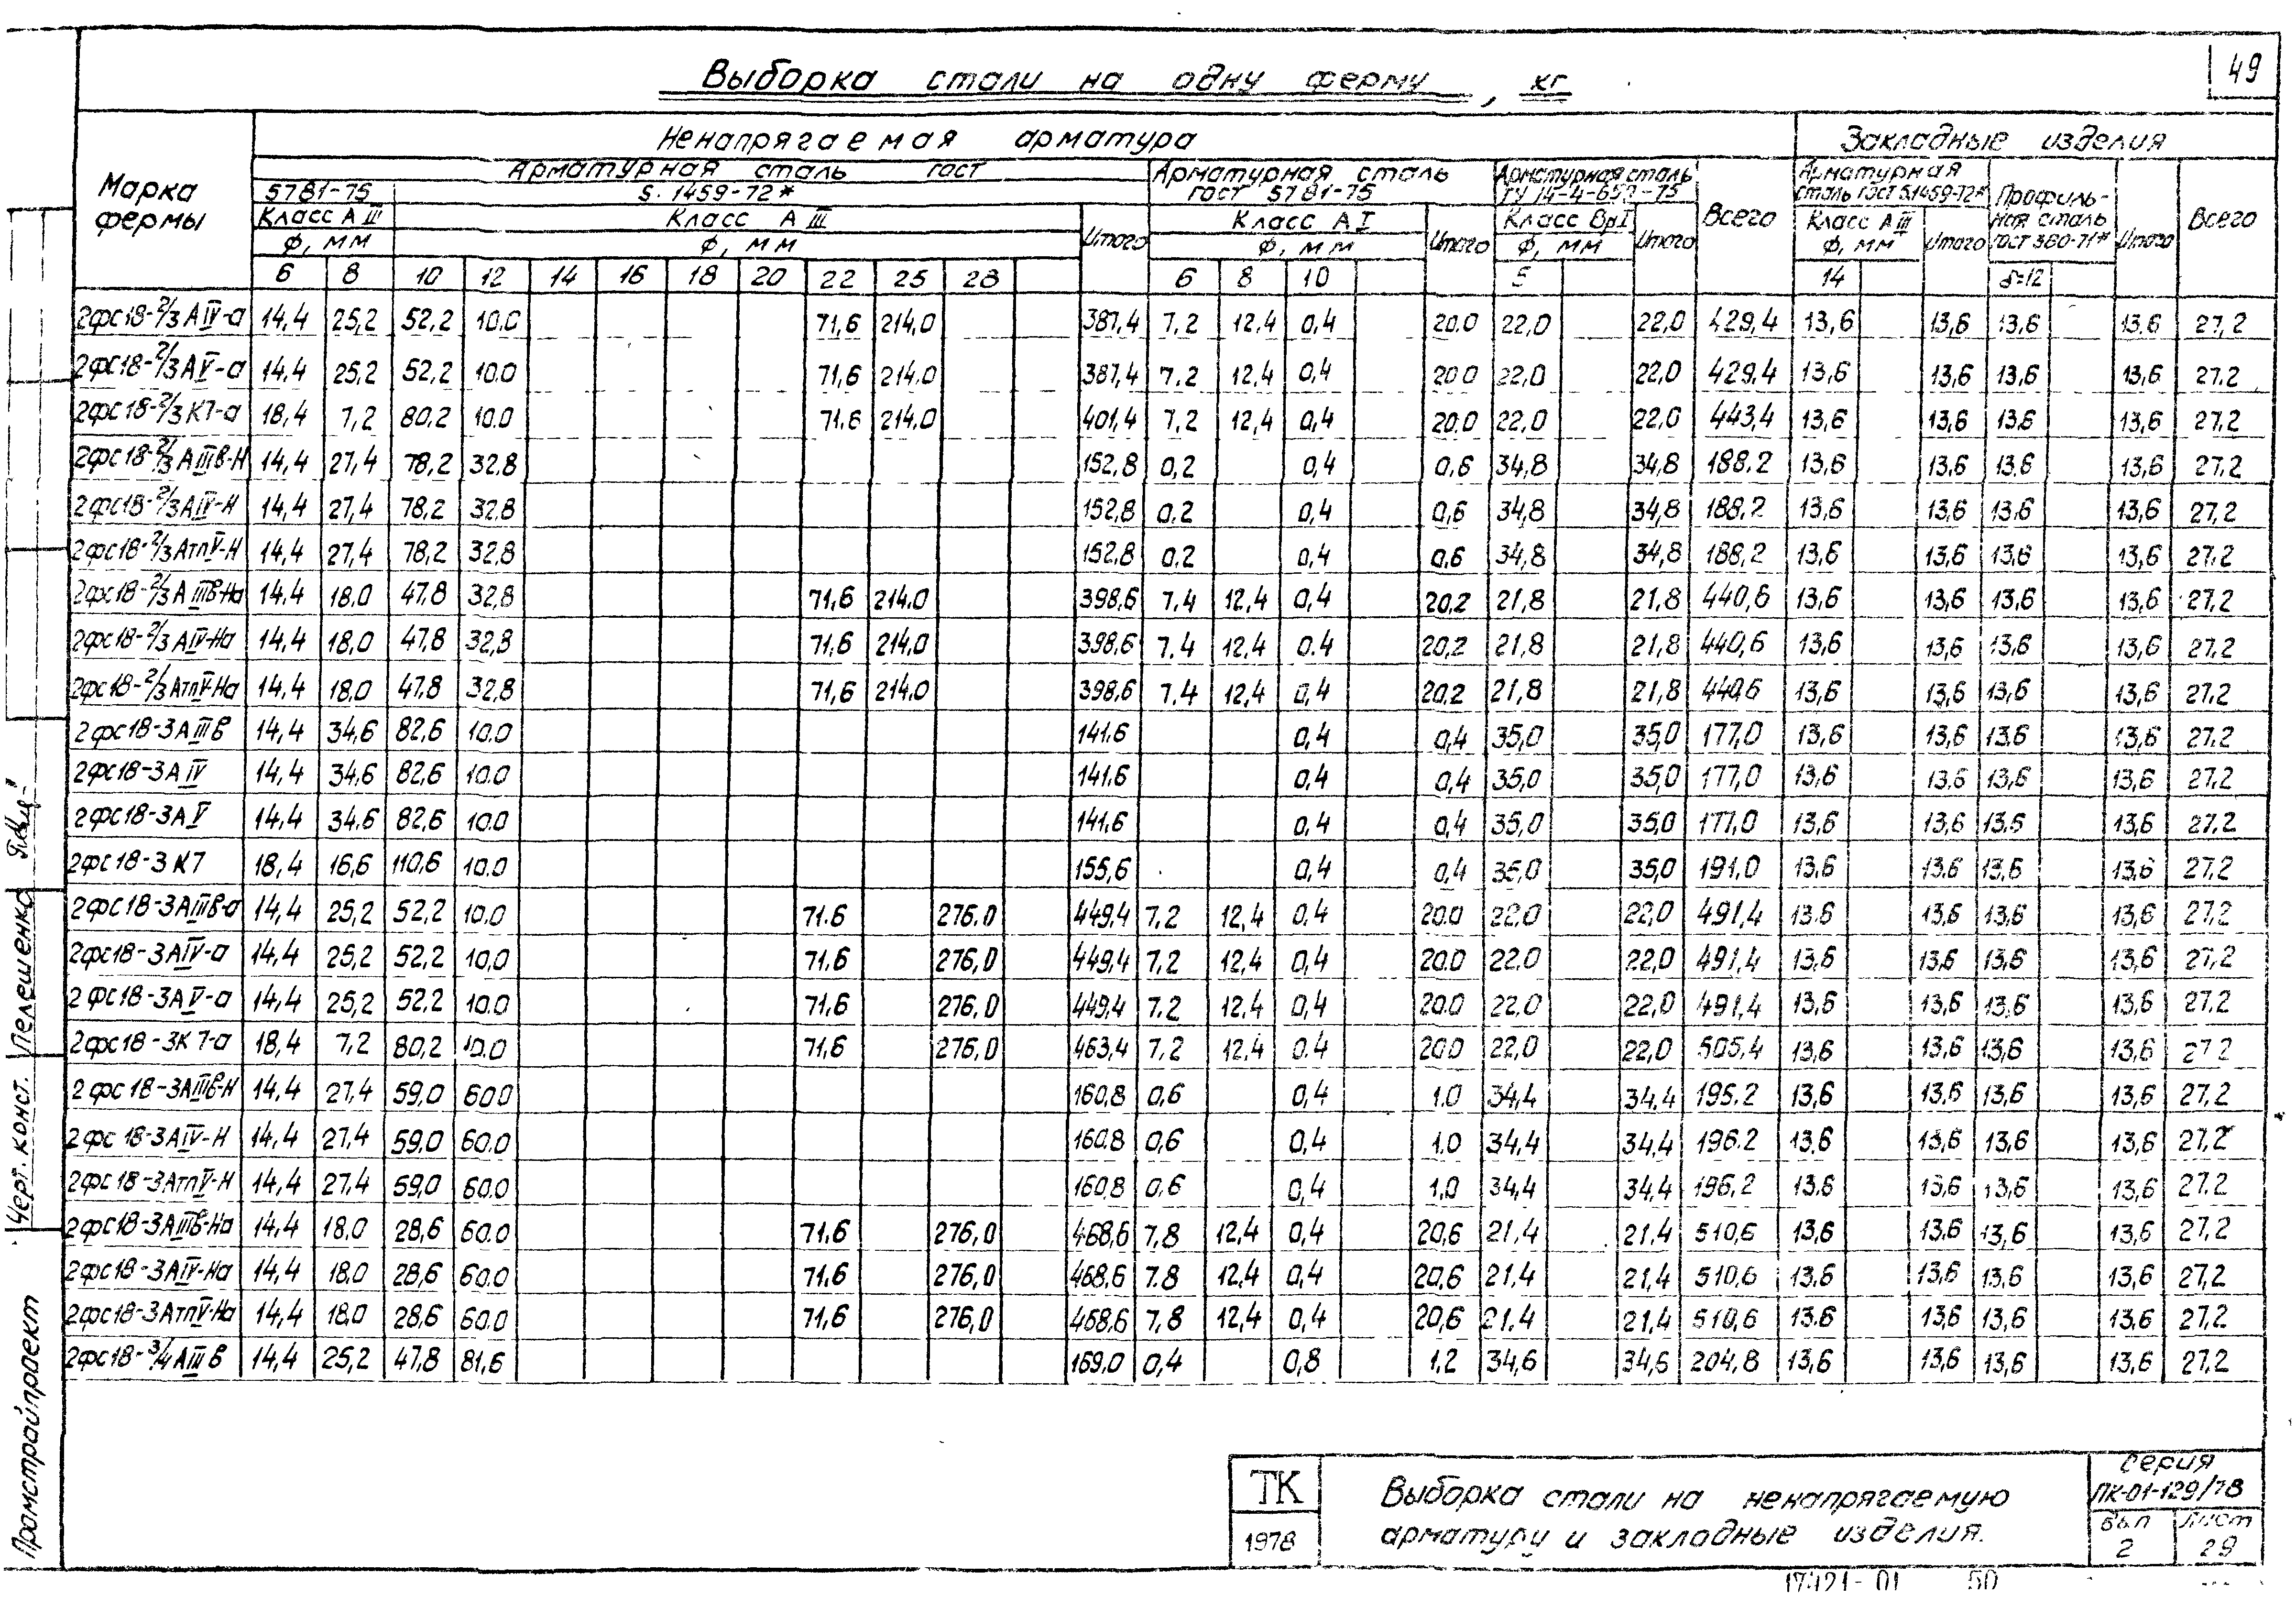 49
Выборка стали на одну ферму, кг
Марка фермы
Ненапрягаемая арматура
Закладные изделия
Арматурная сталь гост
5781-75
5.1459-72*
Класс АIII
Класс АIII
ф, мм
ф, мм
Итого
Арматурная сталь гост 5781-75
Класс АI
ф, мм
Итого
Арматурная сталь ТУ 14-4-659-75
Класс ВрI
ф, мм
Итого
Всего
Арматурная сталь гост 5.1459-72*
Класс АIII
ф, мм
Итого
Профильная сталь гост 380-71*
Итого
Всего
6 8 10 12 14 16 18 20 22 25 28 6 8 10 5 14 δ=12
2фс18-2/3АIV-а 14,4 25,2 52,2 10.0 71,6 214.0 387,4 7,2 12,4 0,4 20.0 22,0 22,0 429,4 13,6 13,6 13,6 13,6 27,2
2фс18-2/3АV-а 14,4 25,2 52,2 10.0 71,6 214.0 387,4 7.2 12,4 0,4 20.0 22,0 22,0 429,4 13,6 13,6 13,6 13,6 27.2
2фс18-2/3К7-а 18,4 7,2 80,2 10.0 71,6 214.0 401,4 7,2 12,4 0,4 20.0 22,0 22,0 443,4 13,6 13,6 13,6 13,6 27,2
2фс18-2/3АIIIв-Н 14,4 27,4 78,2 32.8 152,8 0,2 0,4 0,6 34,8 34,8 188.2 13,6 13,6 13,6 13,6 27,2
2фс18-2/3АIV-Н 14,4 27,4 78,2 32,8 152,8 0.2 0,4 0,6 34,8 34,8 188,2 13,6 13,6 13,6 13,6 27,2
2фс18-2/3АтпV-Н 14,4 27,4 78,2 32,8 152,8 0.2 0,4 0,6 34,8 34,8 188,2 13,6 13,6 13,6 13,6 27.2
2фс18-2/3АIIIв-На 14,4 18.0 47,8 32,8 71,6 214.0 398,6 7,4 12,4 0,4 20,2 21,8 21,8 440,6 13,6 13,6 13,6 13,6 27,2
2фс18-2/3АIV-На 14,4 18,0 47,8 32,8 71,6 214,0 398,6 7,4 12,4 0.4 20,2 21,8 21,8 440,6 13,6 13,6 13,6 13,6 27,2
2фс18-2/3АтпV-На 14,4 18.0 47,8 32,8 71,6 214.0 398,6 7,4 12,4 0,4 20.2 21,8 21,8 440,6 13,6 13,6 13,6 13,6 27,2
2фс18-3АIIIв 14,4 34,6 82,6 10.0 141.6 0,4 0,4 35,0 35,0 177,0 13,6 13,6 13,6 13,6 27.2
2фс18-3АIV 14,4 34,6 82,6 10.0 141,6 0,4 0,4 35,0 35,0 177,0 13,6 13,6 13,6 13,6 27,2
2фс18-3АV 14,4 34,6 82,6 10.0 141,6 0,4 0,4 35,0 35,0 177,0 13,6 13,6 13,6 13,6 27,2
2фс18-3К7 18,4 16,6 110,6 10.0 155,6 0,4 0,4 35,0 35,0 191,0 13,6 13,6 13,6 13,6 27,2
2фс18-3АIIIв-а 14,4 25,2 52,2 10.0 71.6 276.0 449,4 7,2 12,4 0,4 20.0 22.0 22,0 491,4 13,6 13,6 13,6 13,6 27.2
2фс18-3АIV-а 14,4 25,2 52,2 10,0 71.6 276,0 449,4 7,2 12,4 0,4 20.0 22.0 22,0 491,4 13,6 13,6 13,6 13,6 27,2
2фс18-3АV-а 14,4 25,2 52,2 10.0 71,6 276,0 449,4 7,2 12,4 0,4 20.0 22,0 22,0 491,4 13,6 13,6 13,6 13,6 27.2
2фс18-3К7-а 18,4 7,2 80,2 10.0 71,6 276,0 463,4 7,2 12,4 0.4 20.0 22,0 22,0 505,4 13,6 13,6 13,6 13,6 27.2
2фс18-3АIIIв-Н 14,4 27,4 59,0 60.0 160,8 0,6 0,4 1.0 34,4 34,4 195.2 13,6 13,6 13,6 13,6 27.2
2фс18-3АIV-Н 14,4 27,4 59,0 60.0 160.8 0,6 0,4 1.0 34,4 34,4 196.2 13.6 13,6 13,6 13,6 27,2
2фс18-3АтпV-Н 14,4 27,4 59,0 60.0 160.8 0,6 0,4 1,0 34,4 34,4 196,2 13.6 13,6 13,6 13,6 27.2
2фс18-3АIIIв-На 14,4 18.0 28,6 60.0 71.6 276,0 468,6 7,8 12,4 0,4 20,6 21,4 21,4 510,6 13,6 13,6 13,6 13,6 27,2
2фс18-3АIV-На 14,4 18.0 28,6 60.0 71,6 276,0 468,6 7.8 12,4 0,4 20,6 21.4 21,4 510,6 13.6 13,6 13,6 13,6 27,2
2фс18-3АтпV-На 14,4 18,0 28,6 60.0 71,6 276,0 468,6 7,8 12,4 0,4 20,6 21,4 21,4 510,6 13,6 13,6 13,6 13,6 27,2
2фс18-3/4АIIIв 14,4 25,2 47,8 81,6 169,0 0,4 0,8 1,2 34,6 34,6 204,8 13,6 13,6 13,6 13,6 27,2
Черт. конст. Пелешенко
Промстройпроект
ТК
1978
Выборка стали на ненапрягаемую
арматуру и закладные изделия.
Серия
ПК-01-129/78
Вып
2
Лист
29
17421-01 50